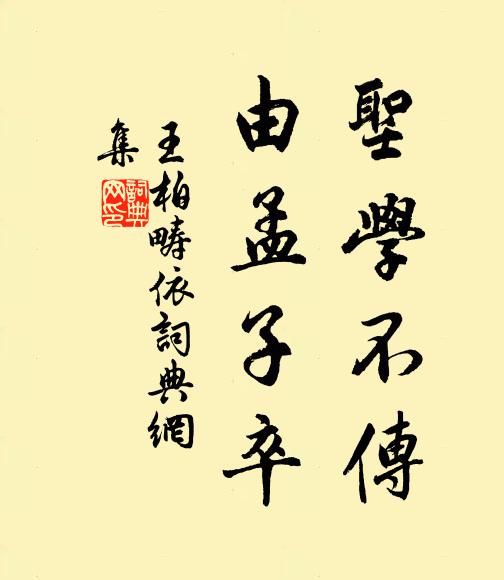 聖學不傳
由孟子卒
王柏疇依詞典網
集
詞典網印